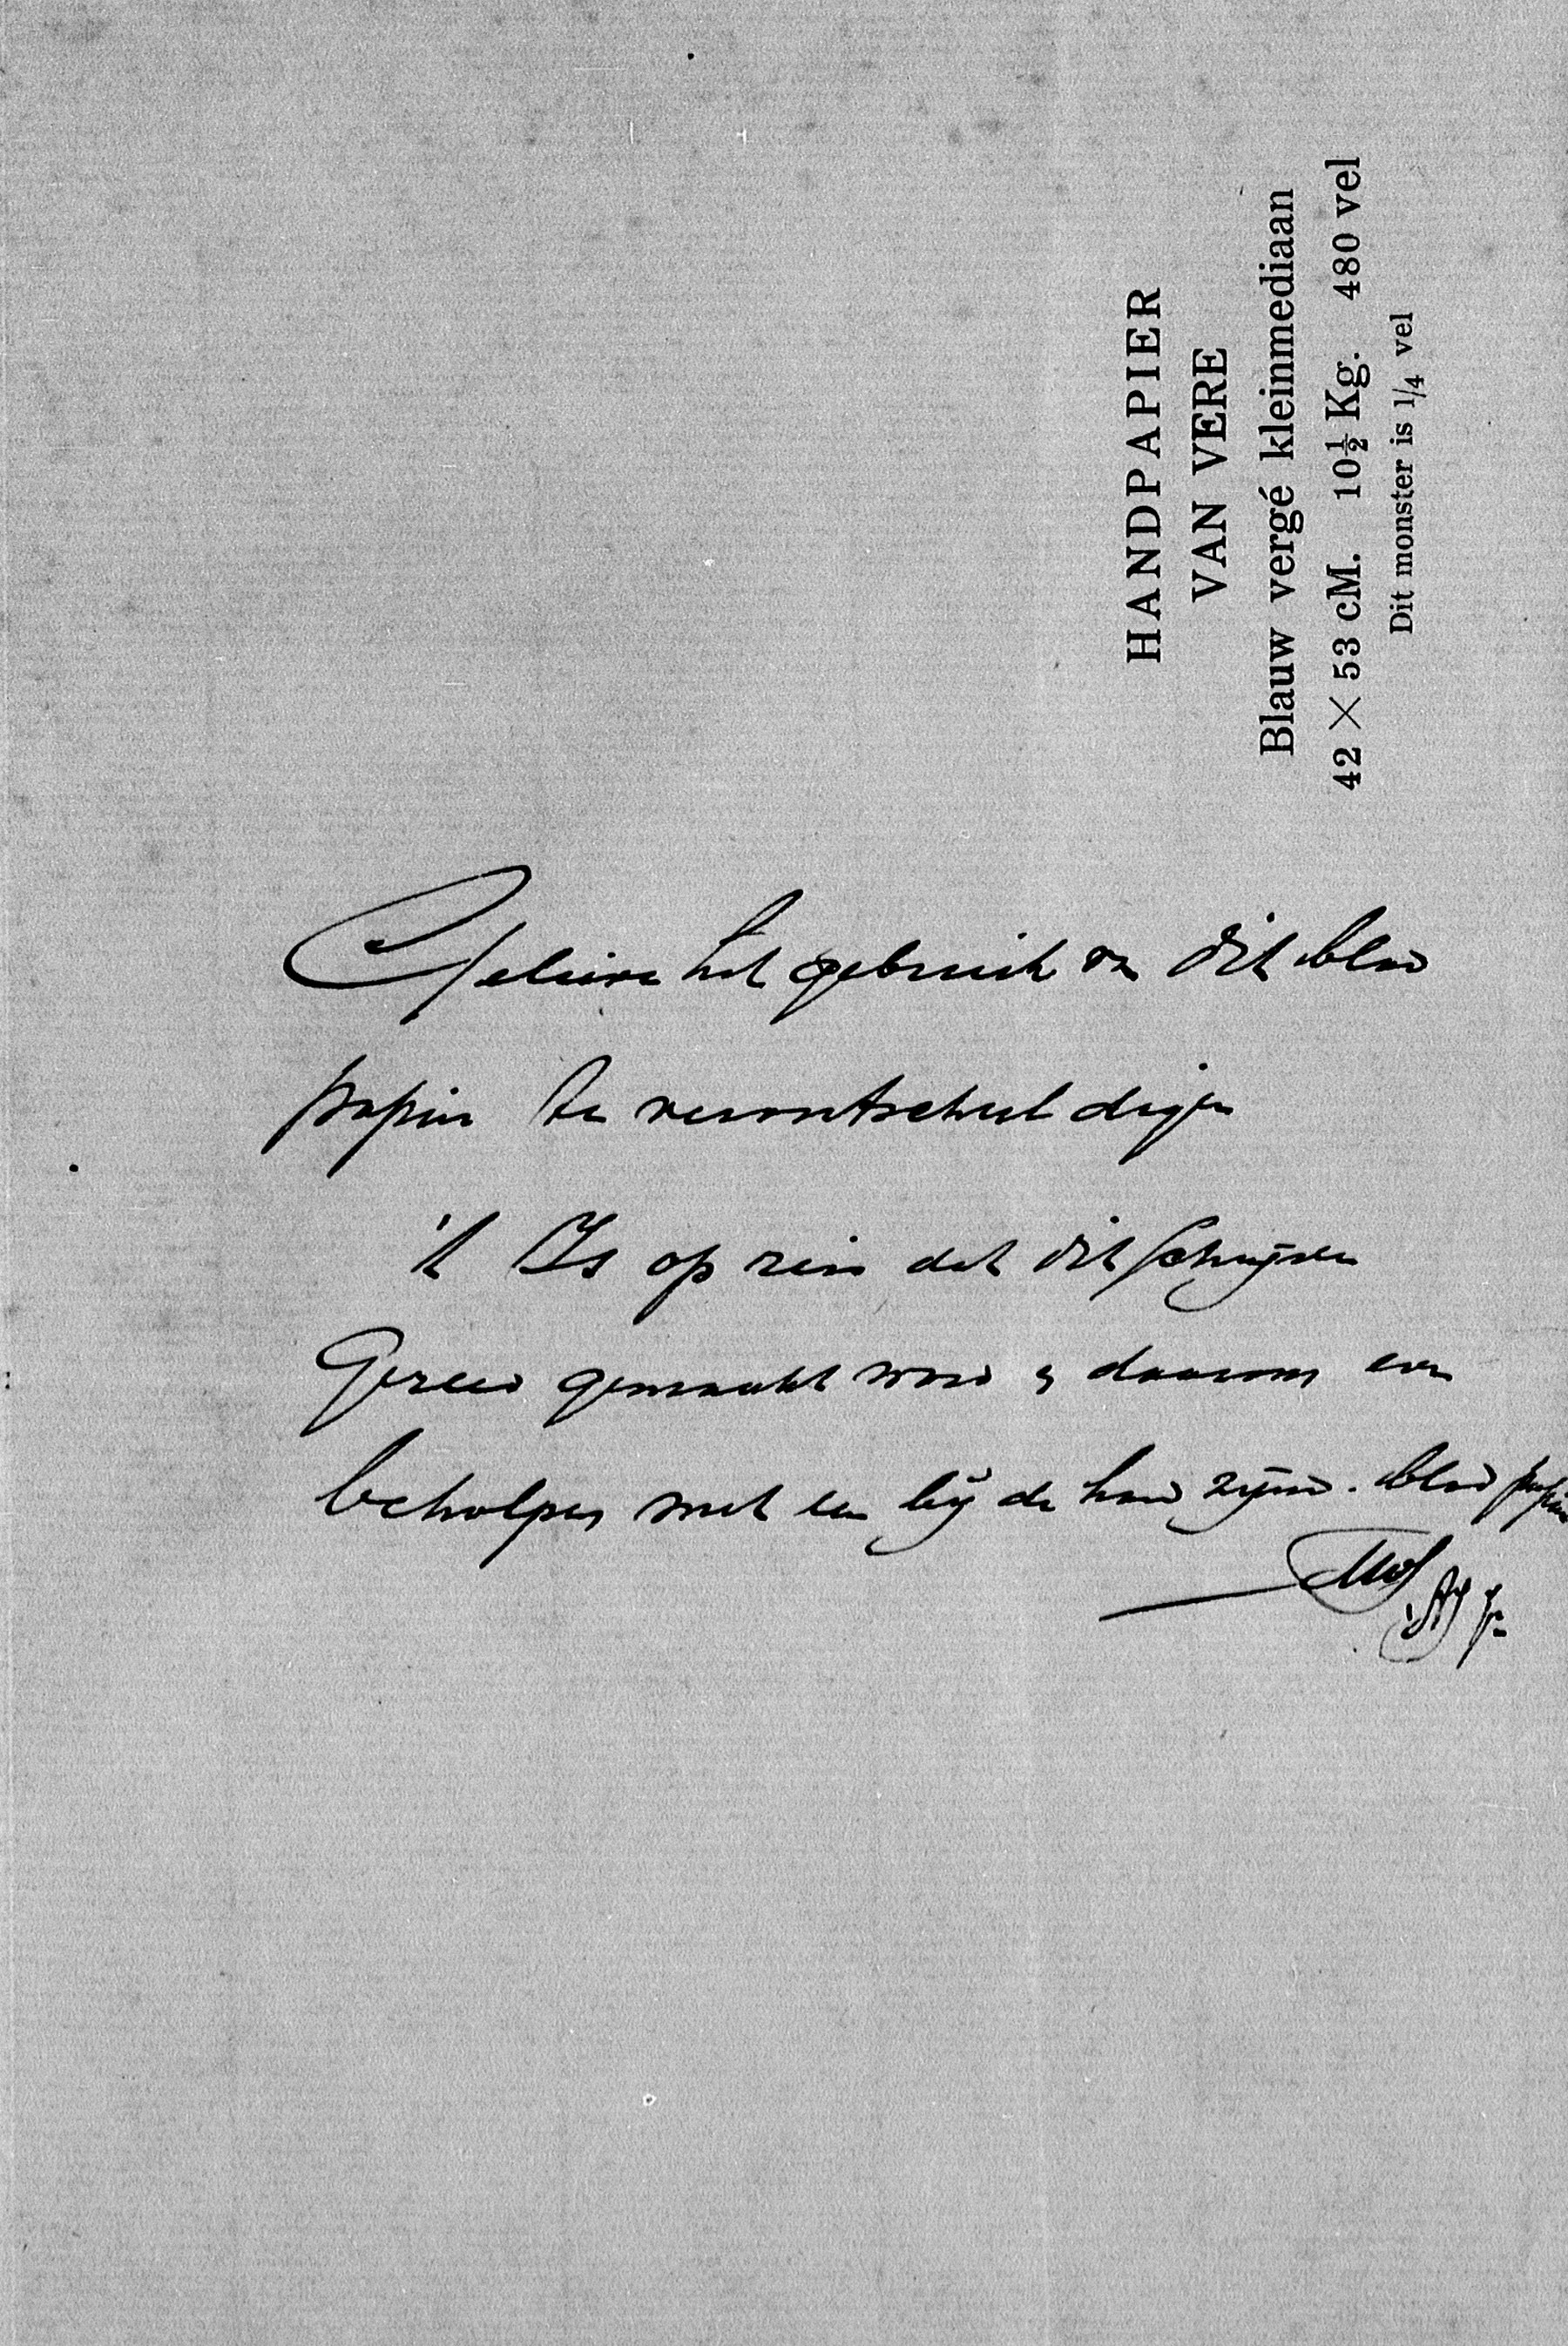 HANDPAPIER
VAN VERE
Blauw vergé kleinmediaan
42 × 53 cM. 10½ Kg. 480 vel
Dit monster is 1/4 vel
Gelieve het gebruik van dit blad
papier te verontschuldigen
't Is op reis dat dit schrijven
Gereed gemaakt word & daarom even
beholpen met een bij de hand zijnd. blad papier